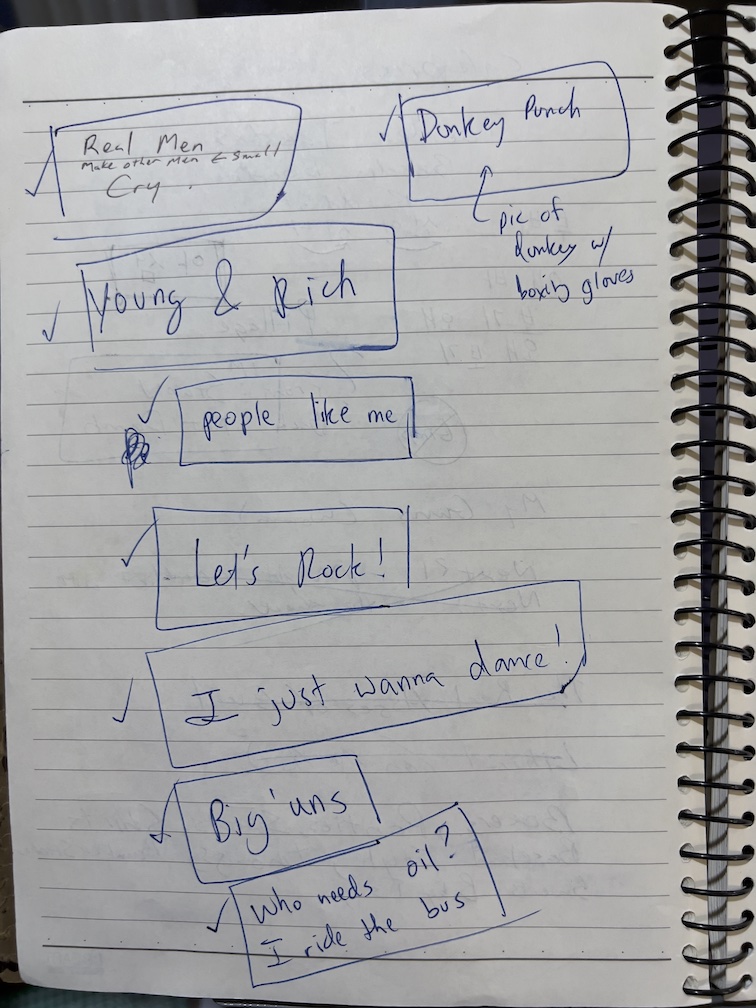 Real Men
Make other men ← small
Cry.
Donkey Punch
pic of
donkey w/
boxing gloves
Young & Rich
people like me
Let's Rock!
I just wanna dance!
Big'uns
Who needs oil?
I ride the bus